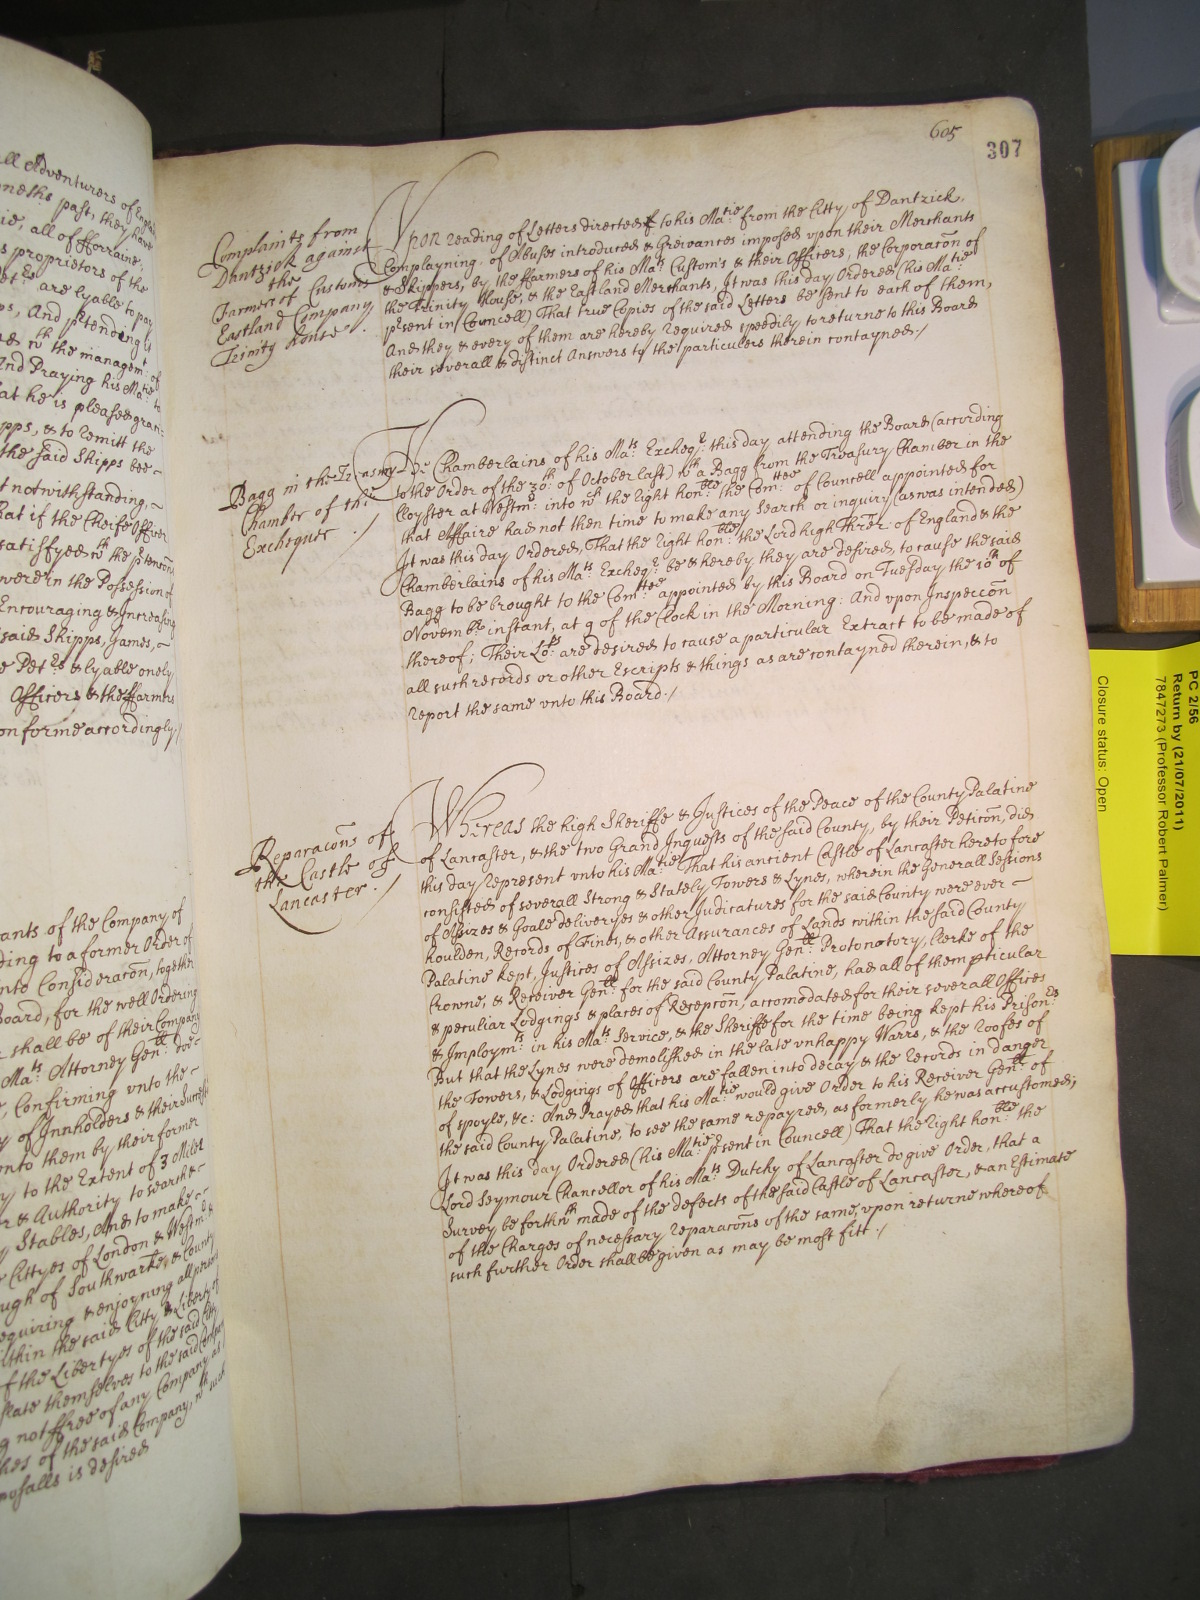 605
307
Complaints from
Dantzick against
the
Farmers of Customs
Eastland Company
Trinity house
Vpon reading of Letters directed to his Ma:tie from the Citty of Dantzick,
Complayning, of Abuses introduced & Greivances imposed vpon their Merchants
& Skippers, by the ffarmers of his Ma:ts Custom's & their Officers, the Corporac͠on of
the Trinity House, & the Eastland Merchants, It was this day Ordered (his Ma:tie
p̱sent in Councell) That true Copies of the said Letters be sent to each of them,
And they & every of them are hereby Required speedily to returne to this Board
their severall & distinct Answers to the particulers therein contayned./
Bagg in the Treasury
Chamber of the
Exchequer ./
The Chamberlains of his Ma:ts Excheq:r this day attending the Board (according
to the Order of the 30:th of October last) w:th a Bagg from the Treasury Chamber in the
Cloyster at Westm:r into w:ch the right hon:ble the Com:ttee of Councell appointed for
that Affaire had not then time to make any Search or inquiry (as was intended)
It was this day Ordered, That the right hon:ble the Lord high Thrẽr of England & the
Chamberlains of his Ma:ts Excheq:r be & hereby they are desired, to cause the said
Bagg to be brought to the Com:ttee appointed by this Board on Tuesday the 10:th of
Novemb:r instant, at 9 of the Clock in the Morning: And vpon Inspecc͠on
thereof; Their Lo:ps are desired to cause a particular Extract to be made of
all such records or other Escripts & things as are contayned therein, & to
report the same vnto this Board./
Reparac͠ons of
the Castle of
Lancaster ./
Whereas the high Sheriffe & Justices of the Peace of the County Palatine
of Lancaster, & the two Grand Inquests of the said County, by their Petic͠on, did
this day represent vnto his Ma:tie That his ancient Castle of Lancaster heretofore
consisted of severall Strong & Stately Towers & Lynes, wherein the Generall Sessions
of Assizes & Goale deliveryes & other Judicatures for the said County were ever
houlden, Records of Fines, & other Assurances of Lands within the said County
Palatine kept, Justices of Assizes, Attorney Gen:ll Protonotory, Clerke of the
Crowne, & Receiver Gen:ll for the said County Palatine, had all of them p̱ticular
& peculiar Lodgings & places of Recepc͠on, accomodated for their severall Offices
& Imploym:ts in his Ma:ts Service, & the Sheriffe for the time being kept his Prison:rs
But that the Lynes were demolished in the late vnhappy Warrs, & the roofes of
the Towers, & Lodgings of Officers are fallen into decay & the Records in danger
of spoyle, &c: And Prayed that his Ma:tie would give Order to his Receiver Gen:ll of
the said County Palatine, to see the same repayred, as formerly he was accustomed;
It was this day Ordered (his Ma:tie p̱sent in Councell) That the right hon:ble the
Lord Seymour Chancellor of his Ma:ts Dutchy of Lancaster do give Order, that a
Survey be forthw:th made of the defects of the said Castle of Lancaster, & an Estimate
of the Charges of necessary reparac͠ons of the same, vpon returne whereof
such further Order shall be given as may be most fitt ./
all Adventurers of
past, they have
all of fforraine,
proprietors of the
are lyable to pay
And p̱tending
w:th the managem:t of
And Praying his Ma:tie to
at he is pleased
& to remitt the
the said Shipps
notwithstanding,
at if the Cheife Officer
satisfyed w:th the
were in the Possession of
Encouraging & Increasing
said Shipps, James,
Pet:rs & lyable onely
Officers & the ffarmers
forme accordingly./
of the Company of
ding to a former Order of
nto Considerac͠on, together
Board, for the well Ordering
shall be of their Company
Ma:ts Attorney Gen:ll
Confirming vnto the
of Innholders & their
vnto them by their former
to the Extent of 3 Miles
& Authority to search
Stables, And to make
Cittyes of London & Westm:r
ugh of Southwarke, & County
equiring & enjoyning all
within the said Citty & Liberty
f the Libertyes of the said
themselves to the said
not ffree of any Company
of the said Company,
is desired
PC 2/56
Return by (21/07/2011)
7847273 (Professor Robert Palmer)
Closure status: Open